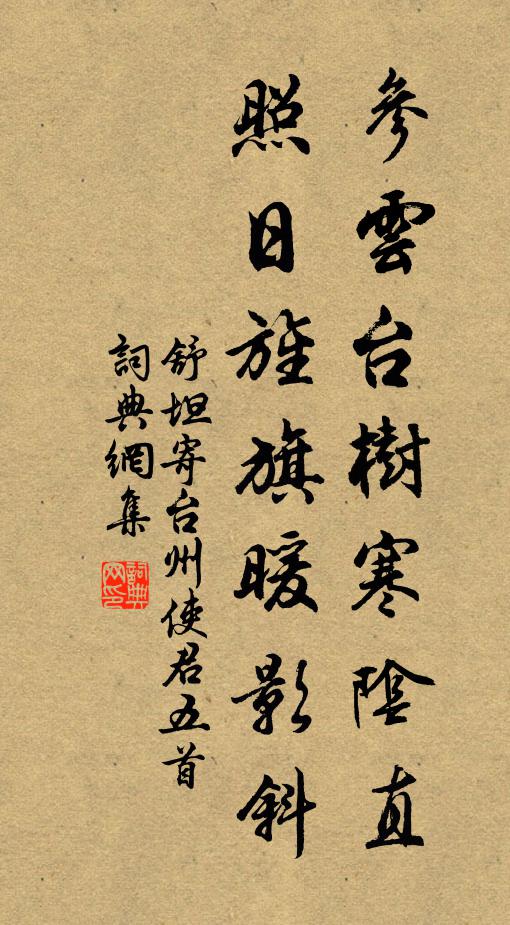 參雲台樹寒陰直
照日旌旗暖影斜
舒坦寄台州使君五首
詞典網集
詞典網印